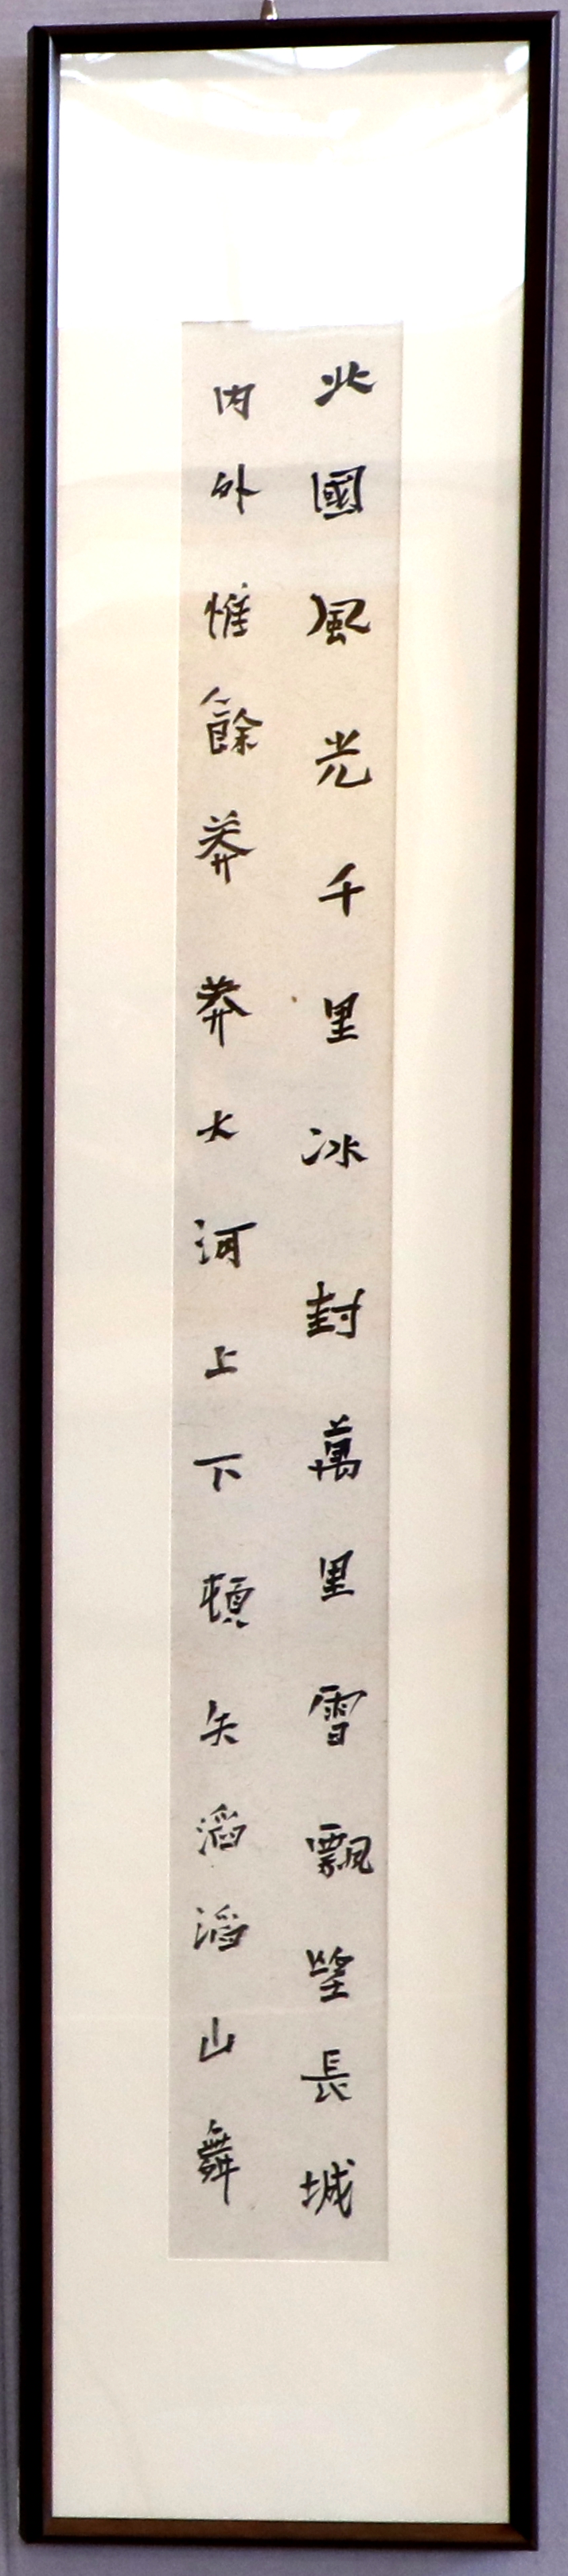 北國風光千里冰封萬里雪飄望長城
内外惟餘莽莽大河上下頓失滔滔山舞